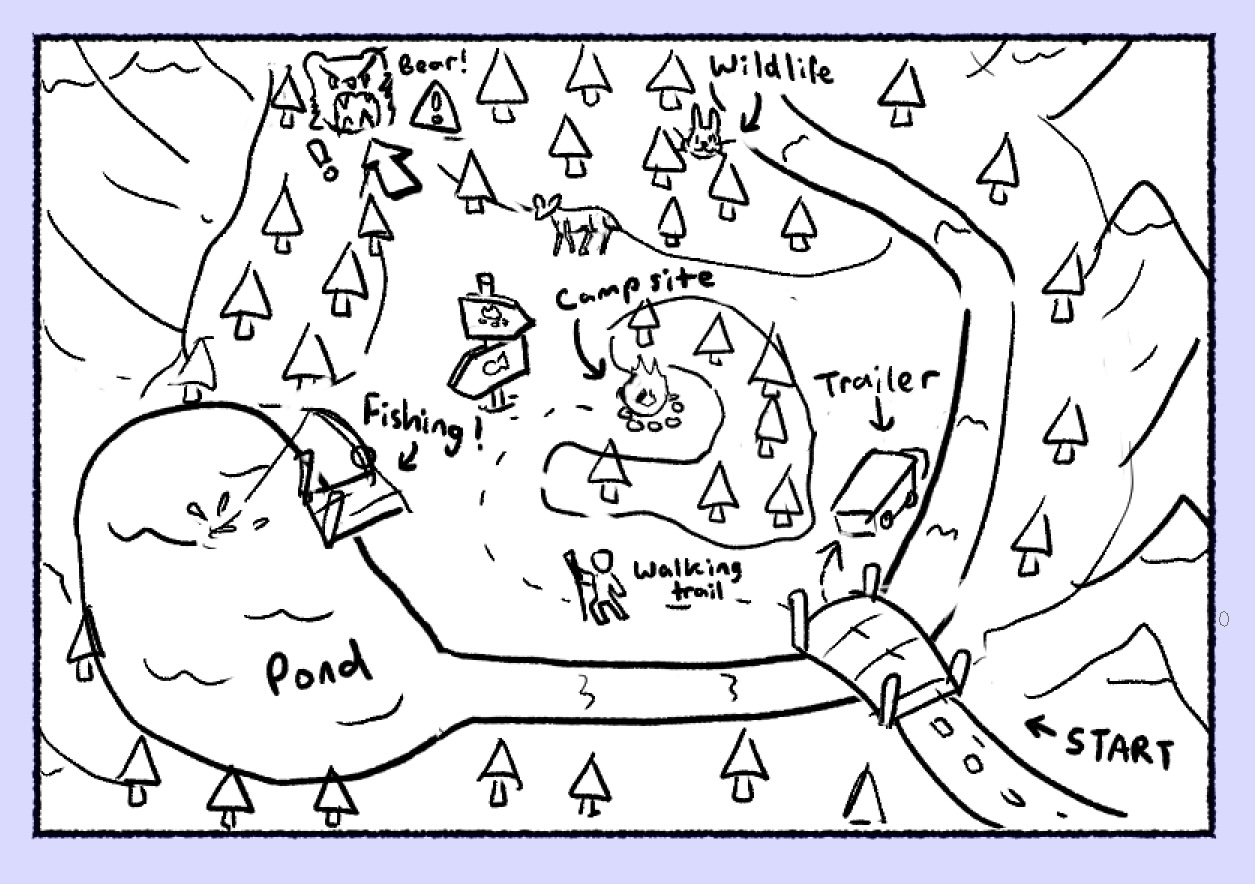 Bear!
Wildlife
Campsite
Trailer
Fishing!
Walking
trail
Pond
START